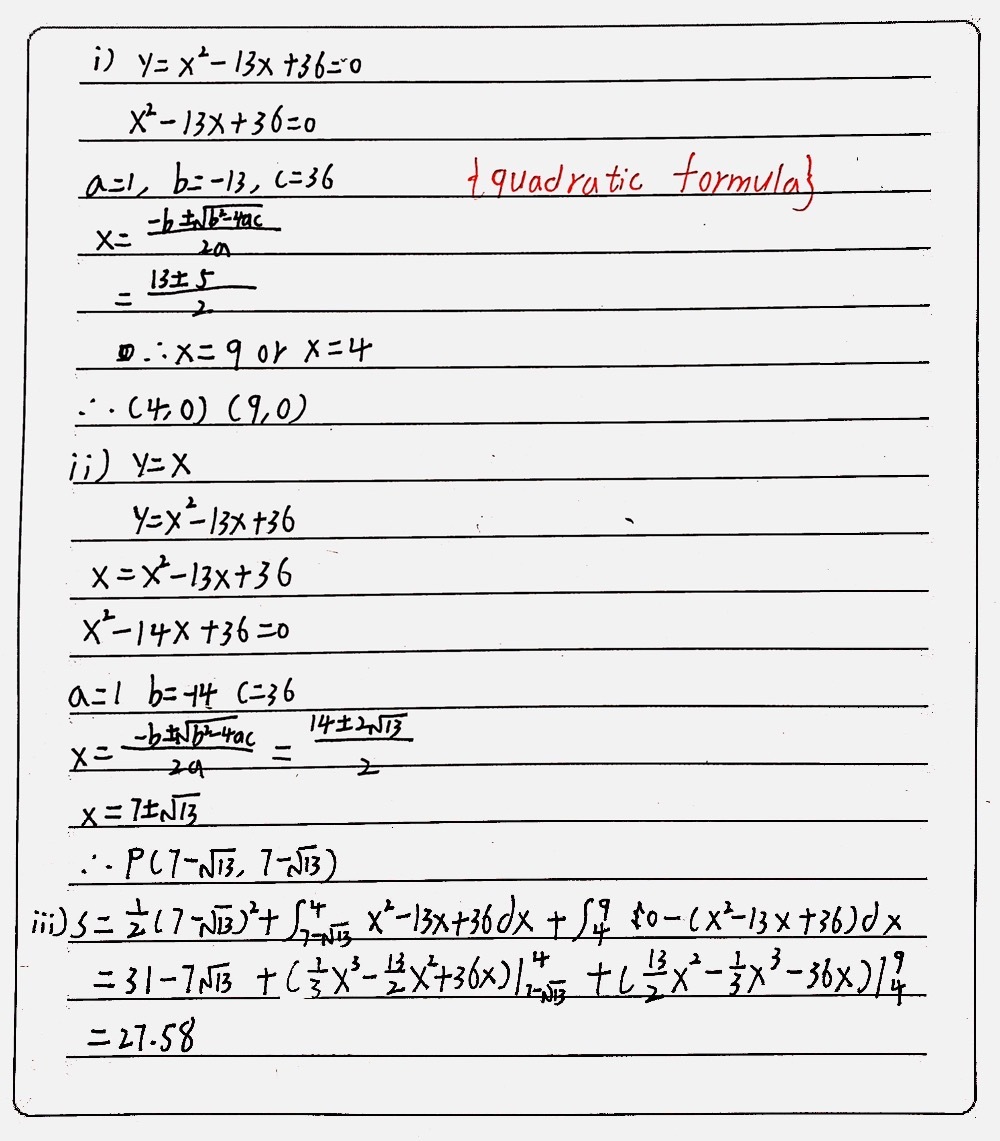 i) y = x² - 13x + 36 = 0
x² - 13x + 36 = 0
a=1, b=-13, c=36 {quadratic formula}
x = \frac{-b ± √(b²-4ac)}{2a}
= \frac{13 ± 5}{2}
∴ x = 9 or x = 4
∴ (4,0) (9,0)
ii) y = x
y = x² - 13x + 36
x = x² - 13x + 36
x² - 14x + 36 = 0
a=1 b=-14 c=36
x = \frac{-b ± √(b²-4ac)}{2a} = \frac{14 ± 2√13}{2}
x = 7 ± √13
∴ P(7-√13, 7-√13)
iii) S = \frac{1}{2}(7-√13)² + ∫_{7-√13}^{4} x² - 13x + 36 dx + ∫_{4}^{9} 0 - (x² - 13x + 36) dx
= 31 - 7√13 + (\frac{1}{3}x³ - \frac{13}{2}x² + 36x)|_{7-√13}^{4} + (\frac{13}{2}x² - \frac{1}{3}x³ - 36x)|_{4}^{9}
= 27.58